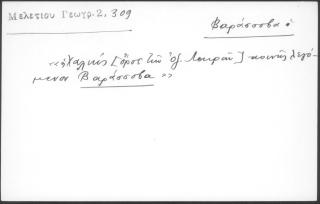 Μελετίου Γεωγρ. 2, 309
Βαράσοβα ἡ
«Χαλκίς [ὄρος τῶν Ὀζ. Λοκρῶν] κοινῶς λεγό-
μενον Βαράσσοβα»